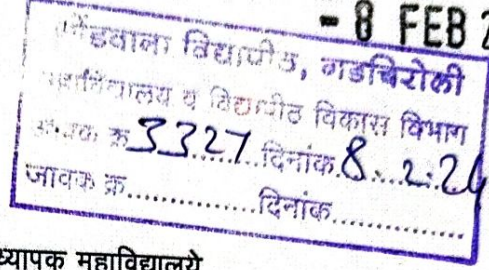 - 8 FEB 2
गोंडवाना विद्यापीठ, गडचिरोली
महाविद्यालय व विद्यापीठ विकास विभाग
आवक क्र 3327 दिनांक 8.2.24
जावक क्र.............. दिनांक..............
ध्यापक महाविद्यालये